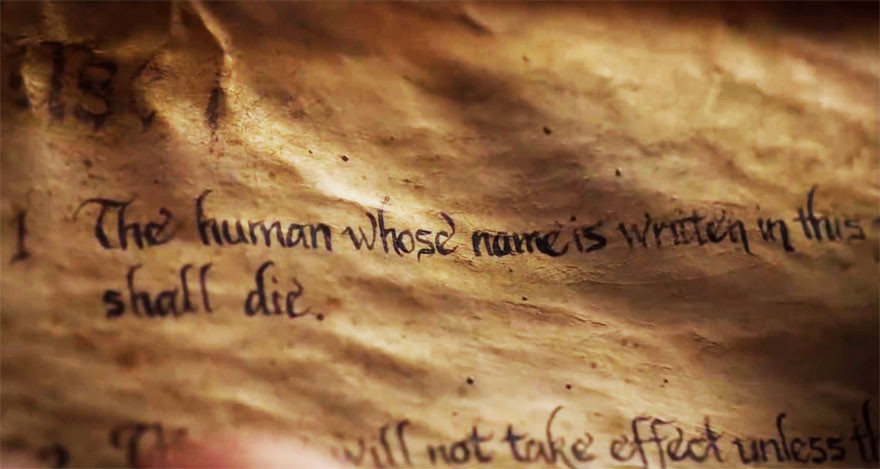 1 The human whose name is written in this
shall die.
will not take effect unless